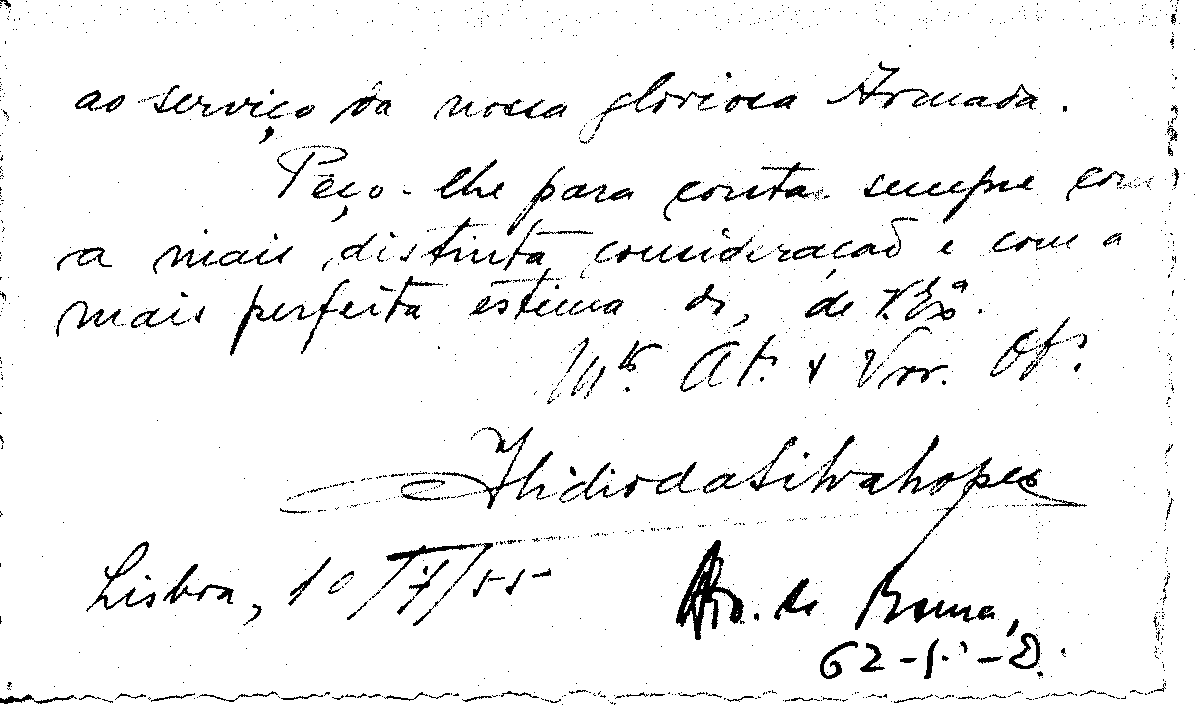 ao serviço da nossa gloriosa Armada.
Peço-lhe para contar sempre com
a mais distinta consideração e com a
mais perfeita estima do, de V. Exª.
Mto. At. e Vor. Of.
Ilidio da Silva Lopes
Lisboa, 10/7/55
Av. de Roma,
62-5º-D.